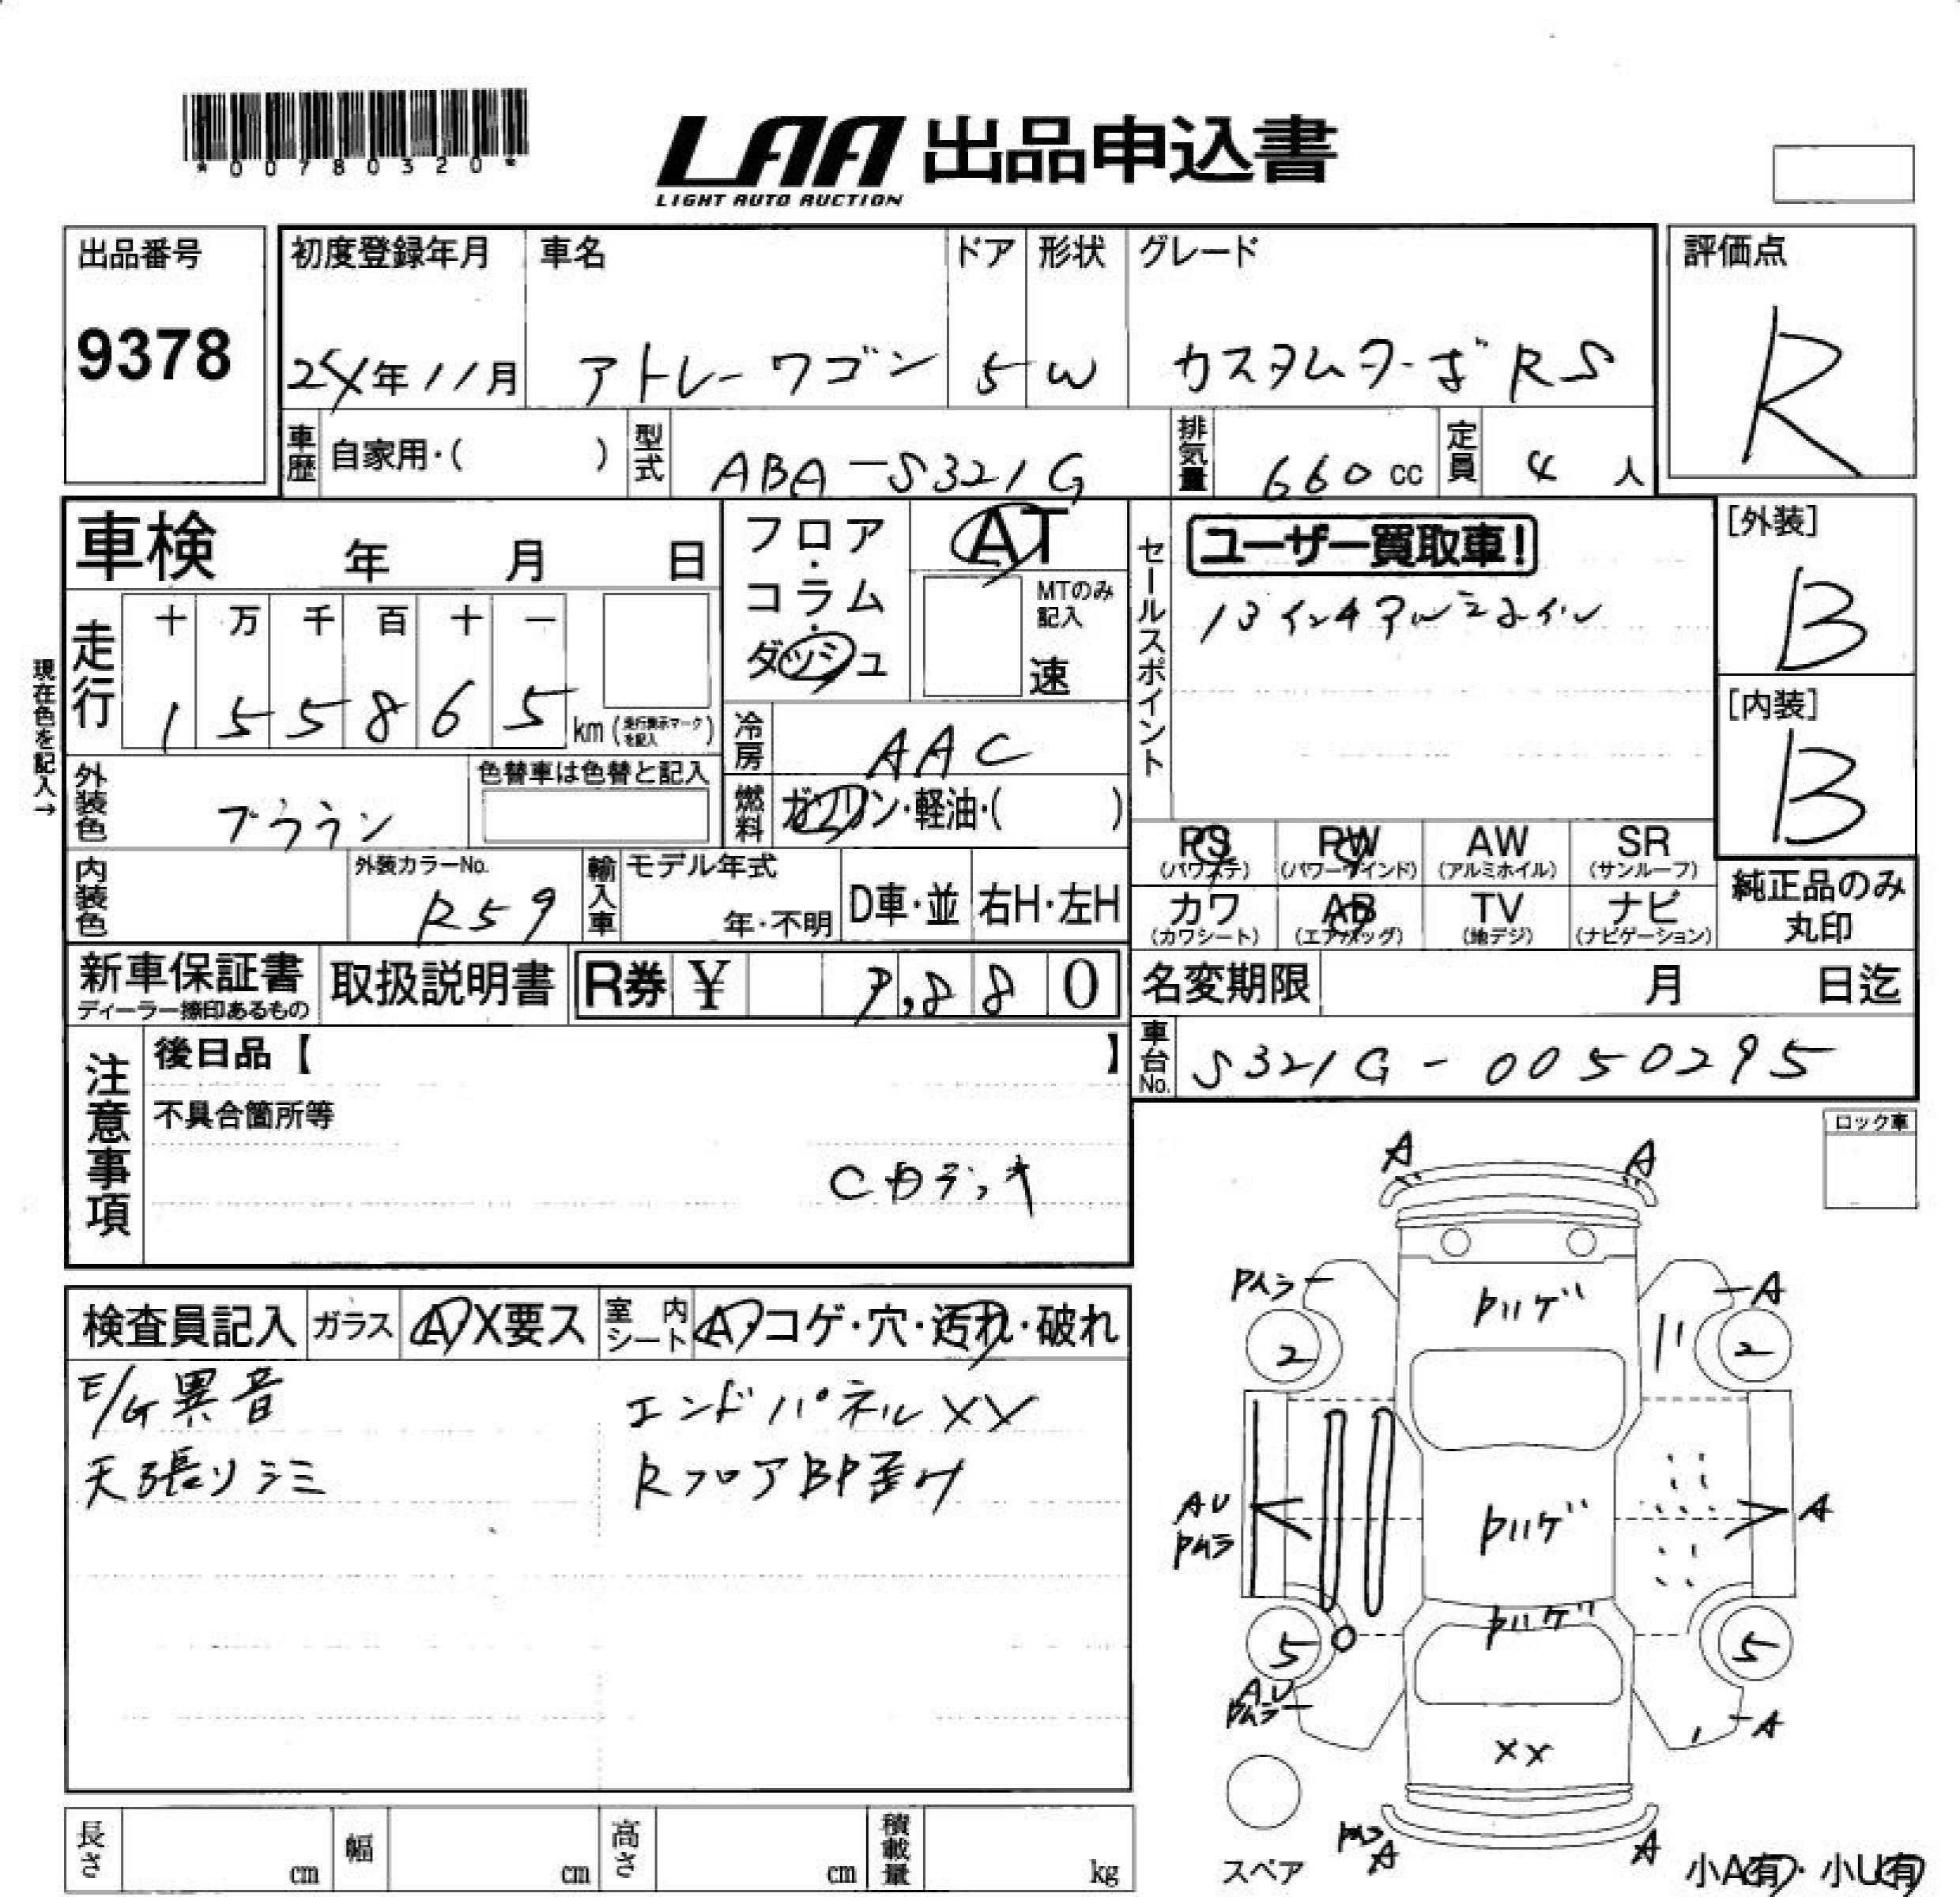 *00780320*
LAA 出品申込書
LIGHT AUTO AUCTION
出品番号
9378
初度登録年月
24年11月
車名
アトレーワゴン
ドア
5
形状
W
グレード
カスタムターボRS
評価点
R
車歴
自家用・( )
型式
ABA-S321G
排気量
660cc
定員
4人
車検 年 月 日
現在色を記入→
走行
十 万 千 百 十 一
1 5 5 8 6 5 km (走行表示マークを記入)
フロア・コラム・ダッシュ
AT
MTのみ記入
速
冷房
AAC
燃料
ガソリン・軽油・( )
外装色
ブラウン
色替車は色替と記入
内装色
外装カラーNo.
R59
輸入車
モデル年式
年・不明
D車・並
右H・左H
セールスポイント
ユーザー買取車!
13インチアルミホイル
[外装]
B
[内装]
B
PS (パワステ)
PW (パワーウインド)
AW (アルミホイル)
SR (サンルーフ)
カワ (カワシート)
AB (エアバッグ)
TV (地デジ)
ナビ (ナビゲーション)
純正品のみ
丸印
新車保証書
ディーラー捺印あるもの
取扱説明書
R券 ¥ 7,880
名変期限 月 日迄
車台No.
S321G-0050295
注意事項
後日品【 】
不具合箇所等
CDデッキ
ロック車
検査員記入
ガラス
A X要ス
室内シート
A・コゲ・穴・汚れ・破れ
E/G異音
天張りシミ
エンドパネルXX
RフロアBP歪み
A
A
Pムラ
Pハゲ
A
2
2
AU
Pムラ
Pハゲ
A
Pハゲ
5
5
AU
Pムラ
A
XX
Pムラ
A
A
スペア
小A(有)・小U(有)
長さ cm
幅 cm
高さ cm
積載量 kg